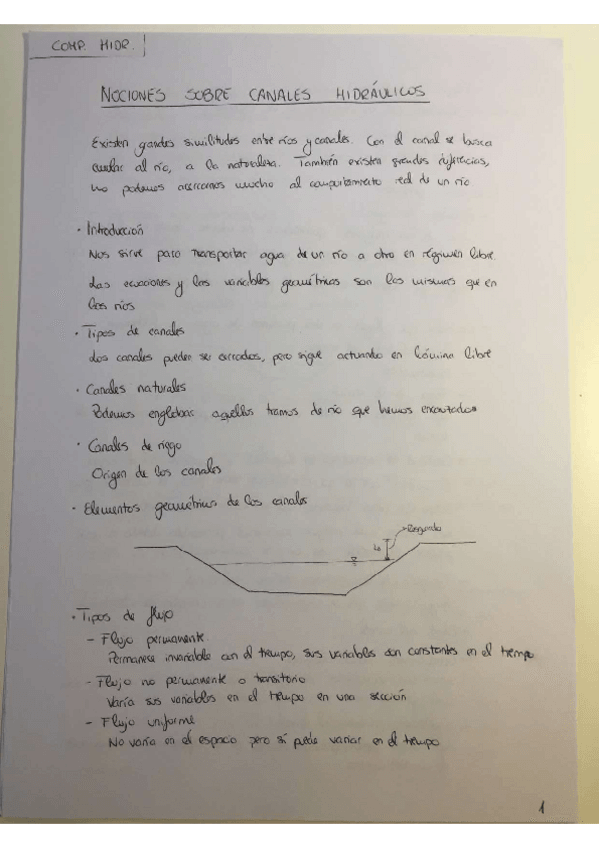 COMP. HIDR.
NOCIONES SOBRE CANALES HIDRÁULICOS
Existen grandes similitudes entre ríos y canales. Con el canal se busca
emular al río, a la naturaleza. También existen grandes diferencias,
no podemos acercarnos mucho al comportamiento real de un río
· Introducción
Nos sirve para transportar agua de un río a otro en régimen libre.
Las ecuaciones y las variables geométricas son las mismas que en
los ríos
· Tipos de canales
Los canales pueden ser cerrados, pero sigue actuando en lámina libre
· Canales naturales
Podemos englobar aquellos tramos de río que hemos encauzados
· Canales de riego
Origen de los canales
· Elementos geométricos de los canales
Resguardo
· Tipos de flujo
- Flujo permanente
Permanece invariable con el tiempo, sus variables son constantes en el tiempo
- Flujo no permanente o transitorio
Varía sus variables en el tiempo en una sección
- Flujo uniforme
No varía en el espacio pero sí puede variar en el tiempo
1